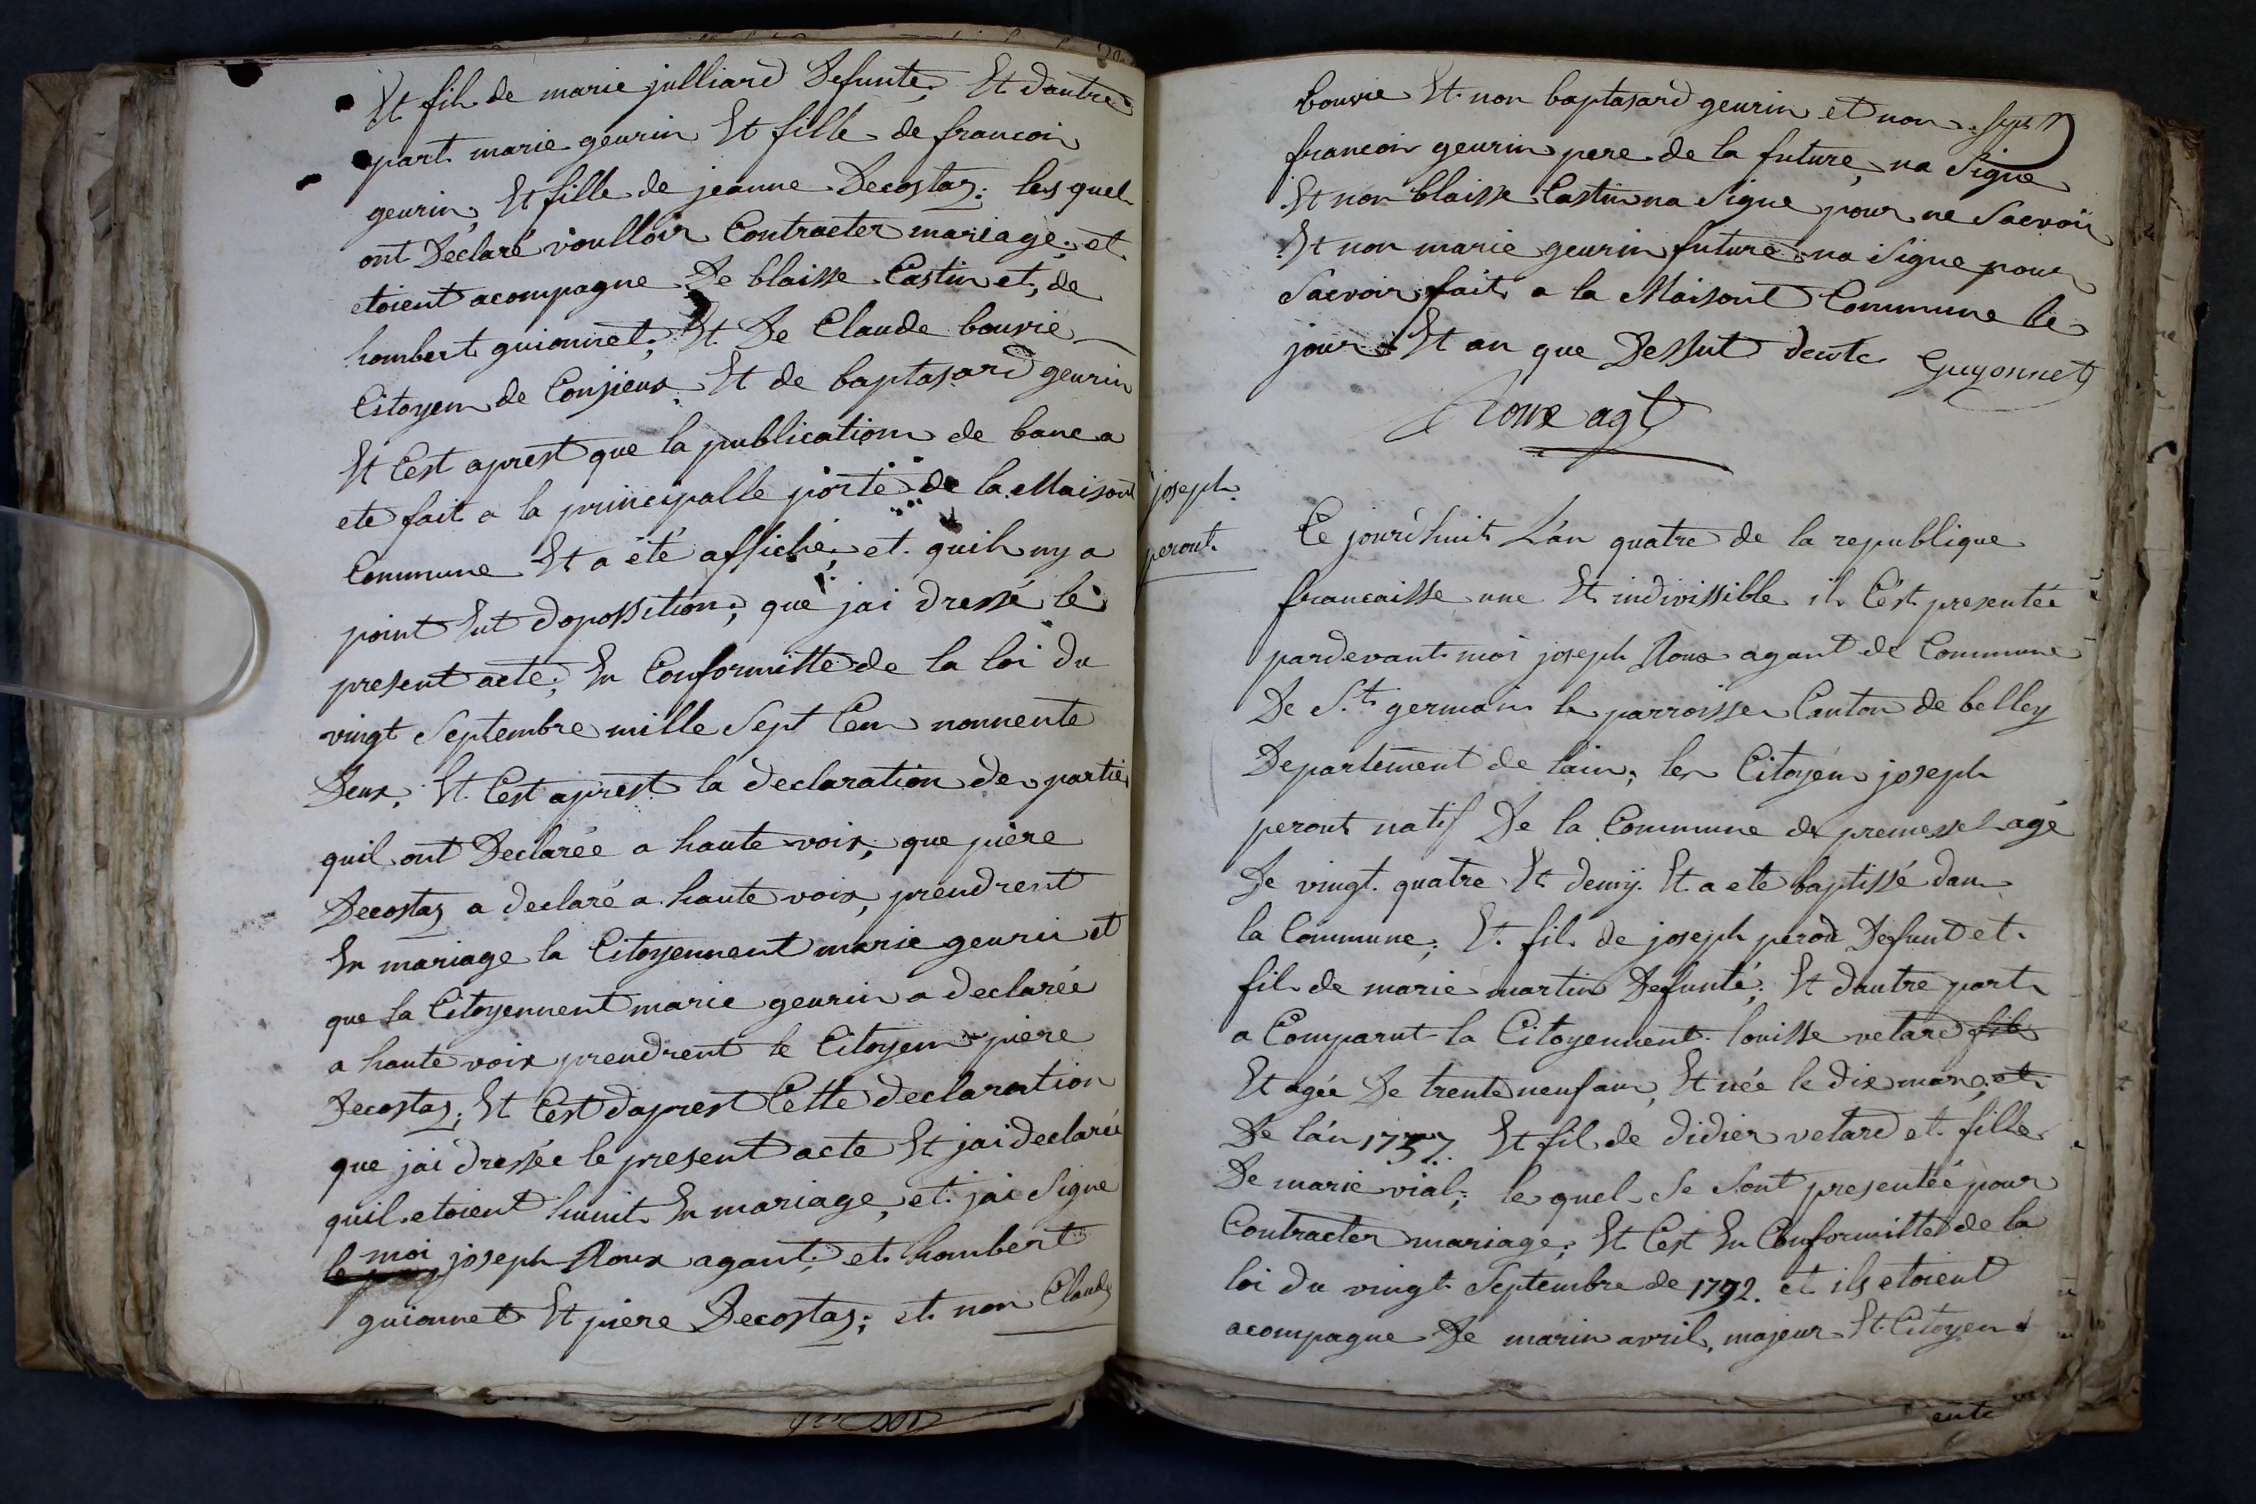 Et fils de marie julliard Defunte, Et dautre
part marie geurin Et fille de francois
geurin, Et fille de jeanne Decostaz; les quels
ont Declaré voulloir Contracter mariage; et
etoient acompagne De blaisse Castin et, de
hombert guionnet; Et De Claude bouvie
Citoyen de Conjieux Et de baptasard geurin
Et Cest aprest que la publication de banc a
ete fait a la principalle porte de la Maisont
Commune Et a été affiché, et quils ny a
point Eut dopossition; que jai dressé le
present acte; En Conformitte de la loi du
vingt Septembre mille Sept Cens nonnente
Deux; Et Cest aprest la declaration des parties
quil ont Declarée a haute voix, que pière
Decostaz a declaré a haute voix, prendrent
En mariage la Citoyennent marie geurin et
que la Citoyennent marie geurin a declarée
a haute voix prendrent le Citoyen pière
Decostaz; Et Cest daprest Cette declaration
que jai dressée le present acte Et jai declarée
quil etoient huinit En mariage, et jai Signe
moi joseph Roux agant; et hombert
guionnet Et pière Decostaz; et non Claude
bouvie Et non baptasard geurin et non
francois geurin pere de la future, na Signe
Et non blaisse Castin na Signe pour ne Sacvoir
Et non marie geurin future na Signe pour
Sacvoir fait a la Maisont Commune le
jour Et an que Dessut
Guyonnet
Roux agt
joseph
peront
Ce jourd'huit L'an quatre de la republique
francaisse une Et indivissible il Cest presentée
pardevant moi joseph Roux agant de Commune
De St. germain le parroisse Canton de belley
Departement de lain; les Citoyen joseph
peront natif De la Commune de premessel agé
De vingt quatre Et demy Et a ete baptissé dans
la Commune; Et fils de joseph perod Defunt et
fils de marie martin Defunte; Et dautre part
a Comparut la Citoyennent louisse vetard fils
Et agée De trente neuf ans, Et née le dix mars, et
De l'an 1757. Et fil de didier vetard et fille
De marie vial; le quel Se Sont presentée pour
Contracter mariage; Et Cest En Conformitte de la
loi du vingt Septembre de 1792. et ils etoient
acompagne De marin avril, majeur Et Citoyen